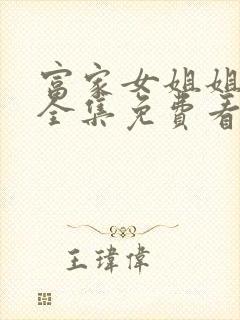 富家女姐姐
全集免费看
王瑋偉